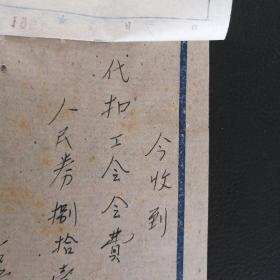 今收到
代扣工会会費
人民券捌拾